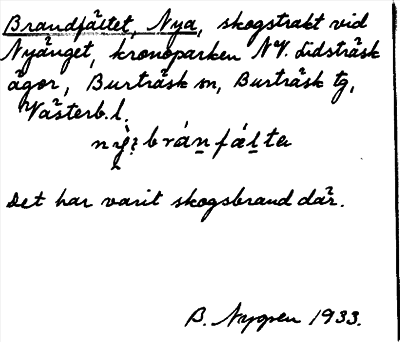 Brandfältet, Nya, skogstrakt vid
Nyänget, kronoparken N.V. Lidsträsk
ägor, Burträsk sn, Burträsk tg,
Västerb. l.
Det har varit skogsbrand där.
B. Nygren 1933.